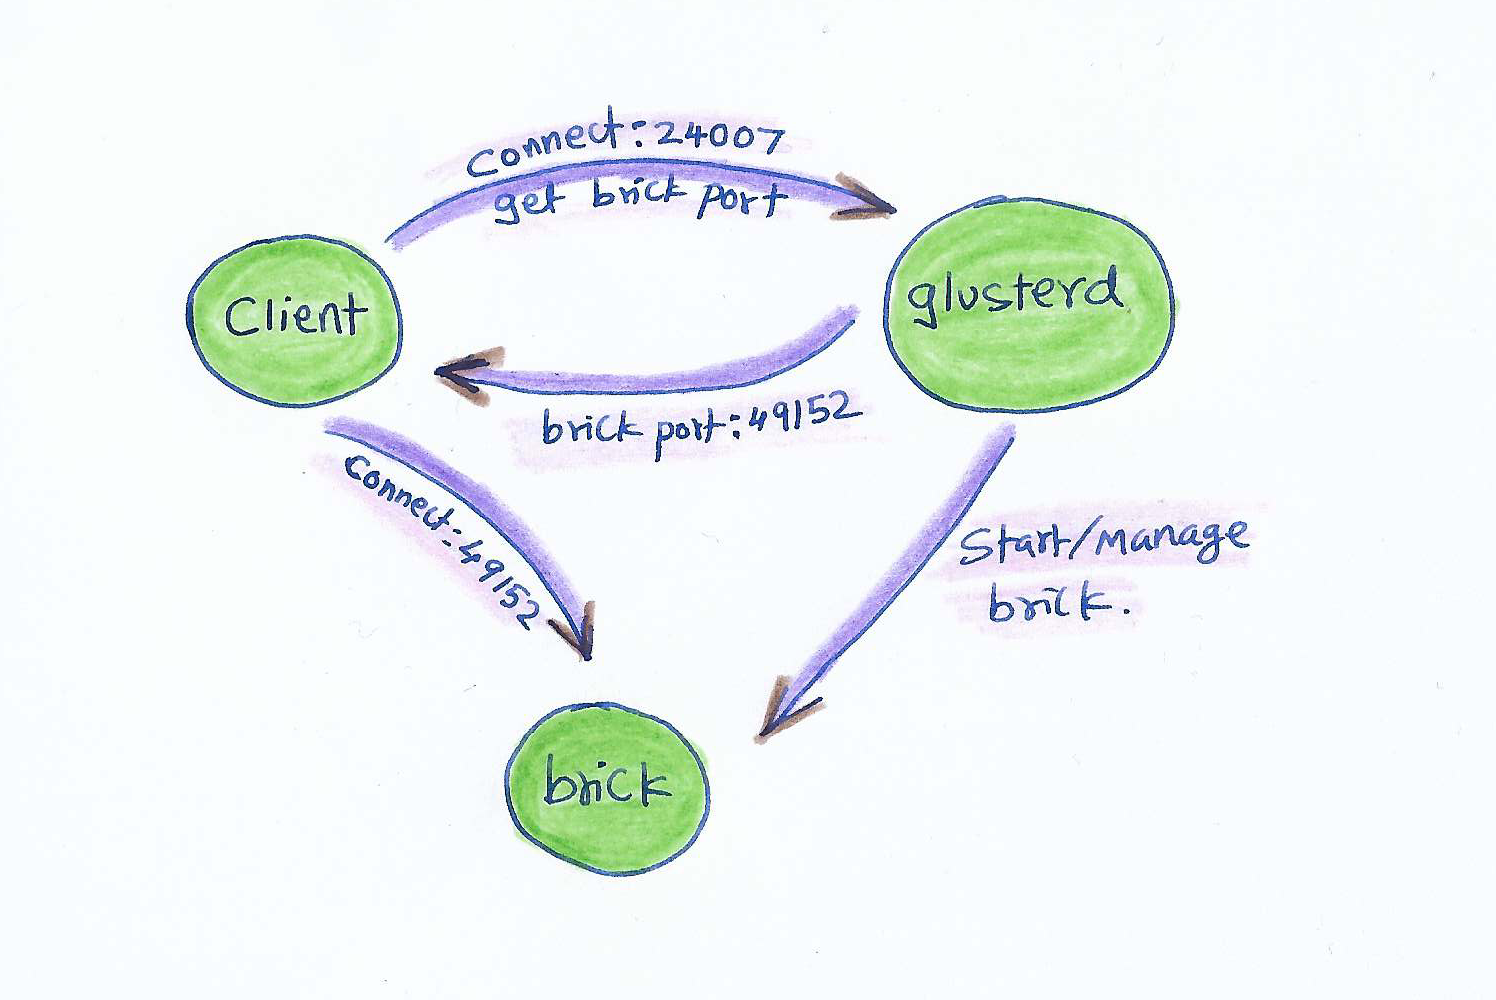 Connect:24007
get brick port
Client
glusterd
brick port:49152
Connect:49152
Start/Manage
brick.
brick